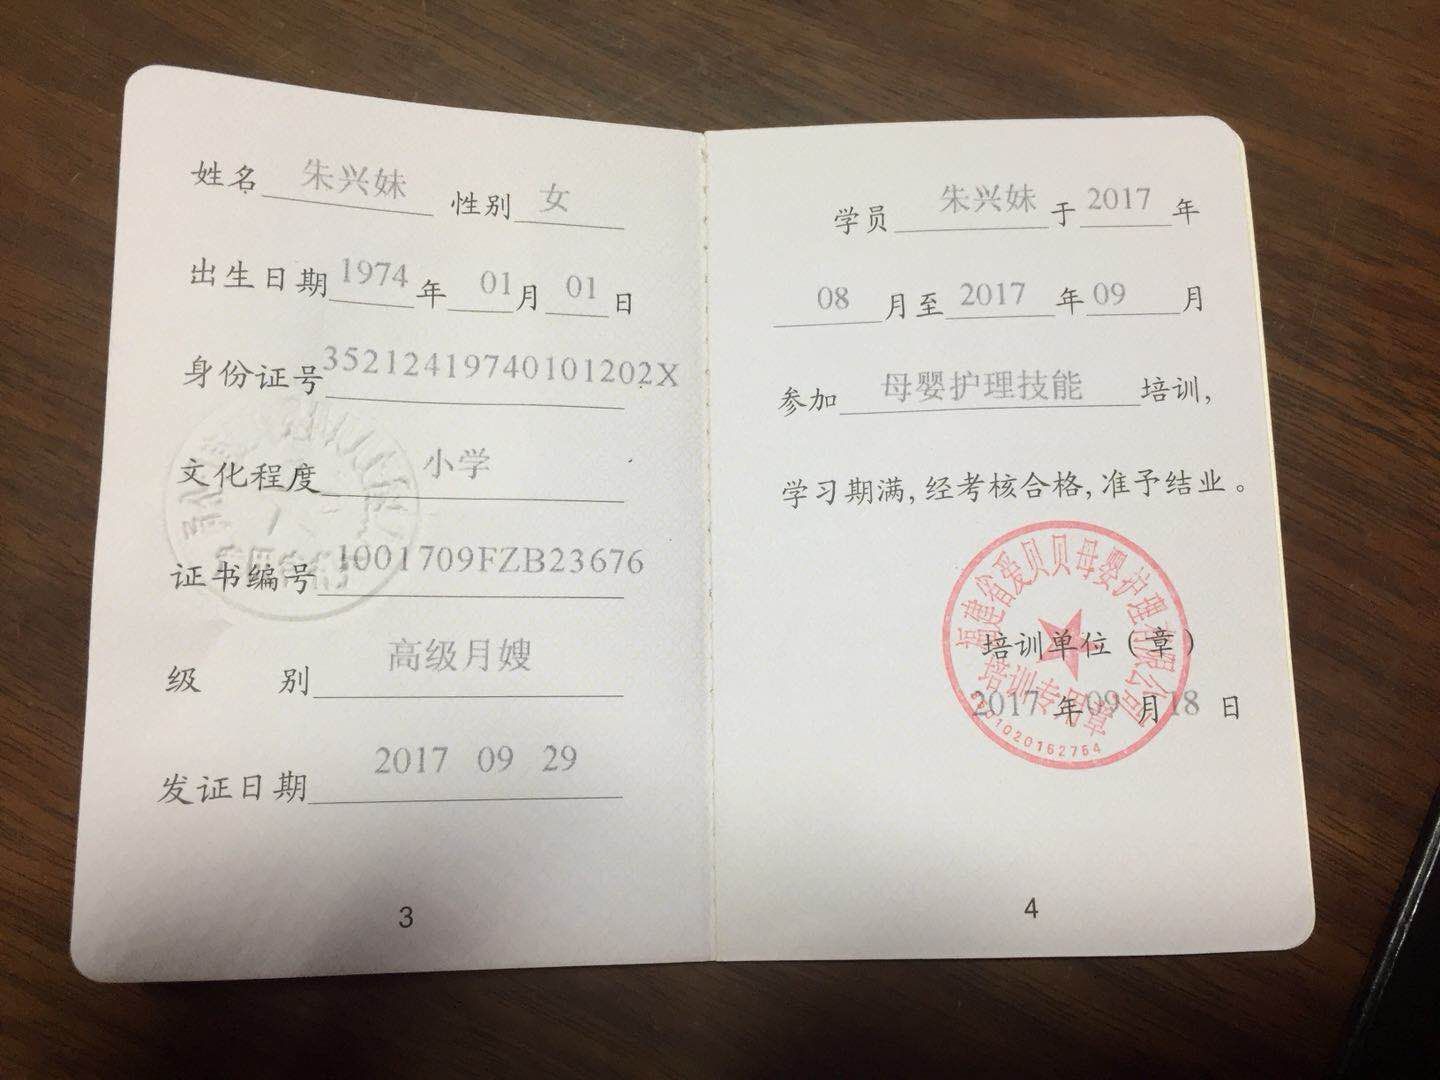 姓名 朱兴妹 性别 女
出生日期 1974 年 01 月 01 日
身份证号 35212419740101202X
文化程度 小学
证书编号 1001709FZB23676
级 别 高级月嫂
发证日期 2017 09 29
3
学员 朱兴妹 于 2017 年
08 月至 2017 年 09 月
参加 母婴护理技能 培训,
学习期满,经考核合格,准予结业。
福建省爱贝贝母婴护理有限公司
培训单位（章）
培训专用章
2017 年 09 月 18 日
4